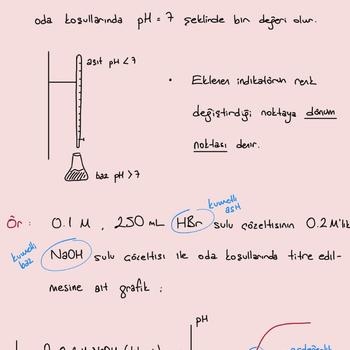 oda koşullarında pH = 7 şeklinde bir değeri olur.
asit pH < 7
• Eklenen indikatörün renk
değiştirdiği noktaya dönüm
noktası denir.
baz pH > 7
kuvvetli
asit
Ör : 0.1 M , 250 mL HBr sulu çözeltisinin 0.2 M'lık
kuvvetli
baz
NaOH sulu çözeltisi ile oda koşullarında titre edil-
mesine ait grafik ;
pH